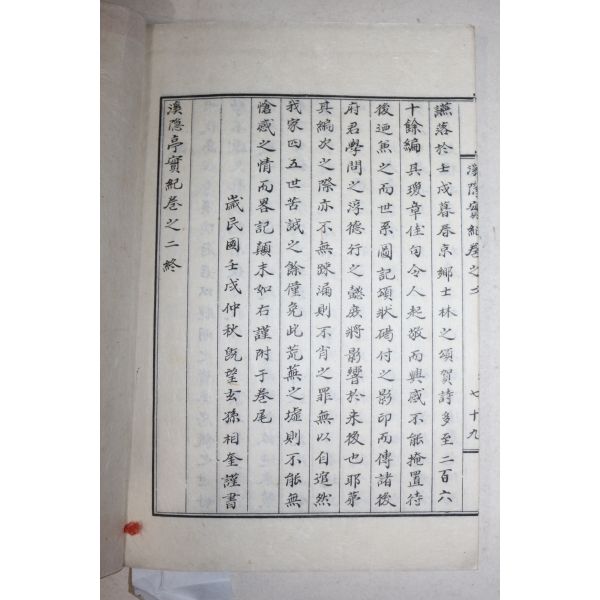 溪隱實紀卷之二
七十九
讌落於壬戌暮春京鄉士林之頌賀詩多至二百六
十餘編其瓊章佳句令人起敬而興感不能掩置待
後迺兼之而世系圖記頌狀碣付之影印而傳諸後
府君學問之淳德行之懿庶將影響於來後也耶第
其編次之際亦不無踈漏則不肖之罪無以自逭然
我家四五世苦誠之餘僅免此荒蕪之墟則不能無
愴感之情而畧記顚末如右謹附于卷尾
歲民國壬戌仲秋旣望玄孫相奎謹書
溪隱亭實紀卷之二終